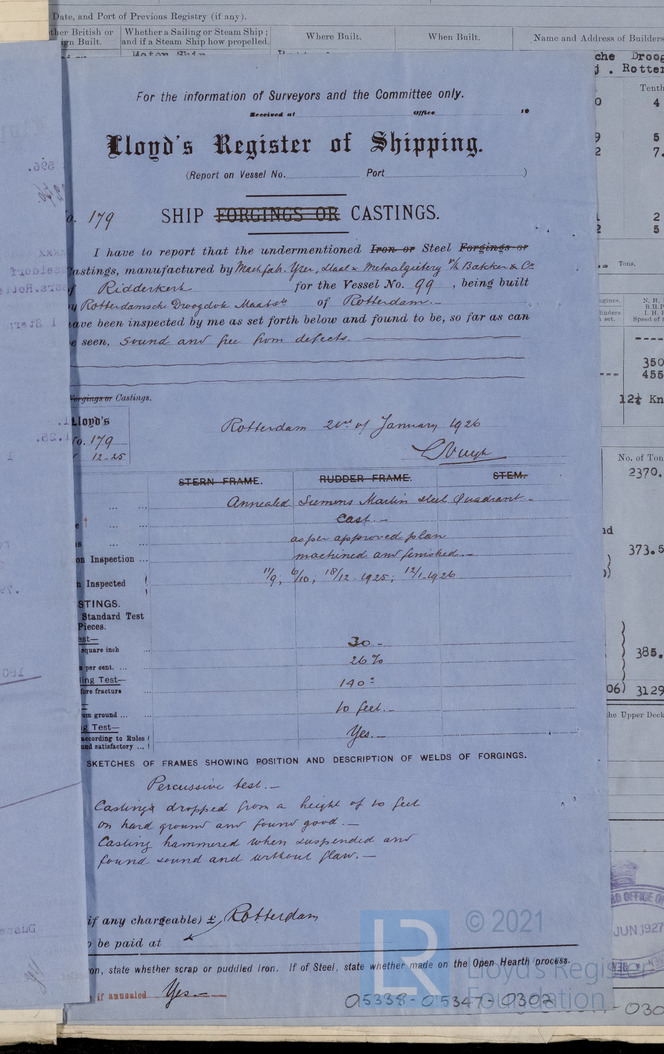 Date, and Port of Previous Registry (if any).
Whether a Sailing or Steam Ship;
and if a Steam Ship how propelled.
Where Built.
When Built.
Name and Address of Builders
For the information of Surveyors and the Committee only.
Received at Office 19
Lloyd's Register of Shipping.
(Report on Vessel No. Port )
No. 179 SHIP FORGINGS OR CASTINGS.
I have to report that the undermentioned Iron or Steel Forgings or
Castings, manufactured by Machfab. Yzer, Staal & Metaalgietery v/h Bakker & Co
of Ridderkerk for the Vessel No. 99, being built
by Rotterdamsch Droogdok Maats of Rotterdam.—
have been inspected by me as set forth below and found to be, so far as can
be seen, Sound and free from defects.—
Forgings or Castings.
Lloyd's
No. 179
12-25
Rotterdam 2 of January 1926
STERN FRAME. RUDDER FRAME. STEM.
Annealed Siemens Martin Steel Quadrant.—
Cast.—
as per approved plan
on Inspection ... machined and finished.—
n Inspected 11/9; 6/10; 18/12-1925; 12/1-1926
STINGS.
Standard Test
Pieces.
square inch 30.—
per cent. ... 26%
ing Test—
fore fracture 140°
um ground ... 10 feet.—
g Test—
according to Rules
und satisfactory ... Yes.—
SKETCHES OF FRAMES SHOWING POSITION AND DESCRIPTION OF WELDS OF FORGINGS.
Percussive test.—
Castings dropped from a height of 10 feet
on hard ground and found good.—
Casting hammered when suspended and
found sound and without flaw.—
if any chargeable) £ Rotterdam
be paid at
on, state whether scrap or puddled Iron. If of Steel, state whether made on the Open Hearth process.
if annealed Yes.—
05338-05347-0302
LR
© 2021
Lloyd's Register
Foundation
Droog
Rotter
Tenth
Tons.
350
455
12½ Kn
No. of Ton
2370.
373.5
385.
3129
the Upper Deck
JUN 1927